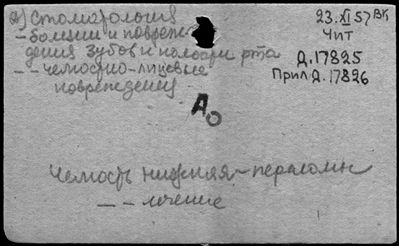 а) Стоматология
23.XI 57 ВК
– болезни и поврежде-
чит
дения зубов и полости рта
Д.17825
– – челюстно-лицевые
Прил Д.17826
повреждения
До
Челюсть нижняя – переломы
– – лечение